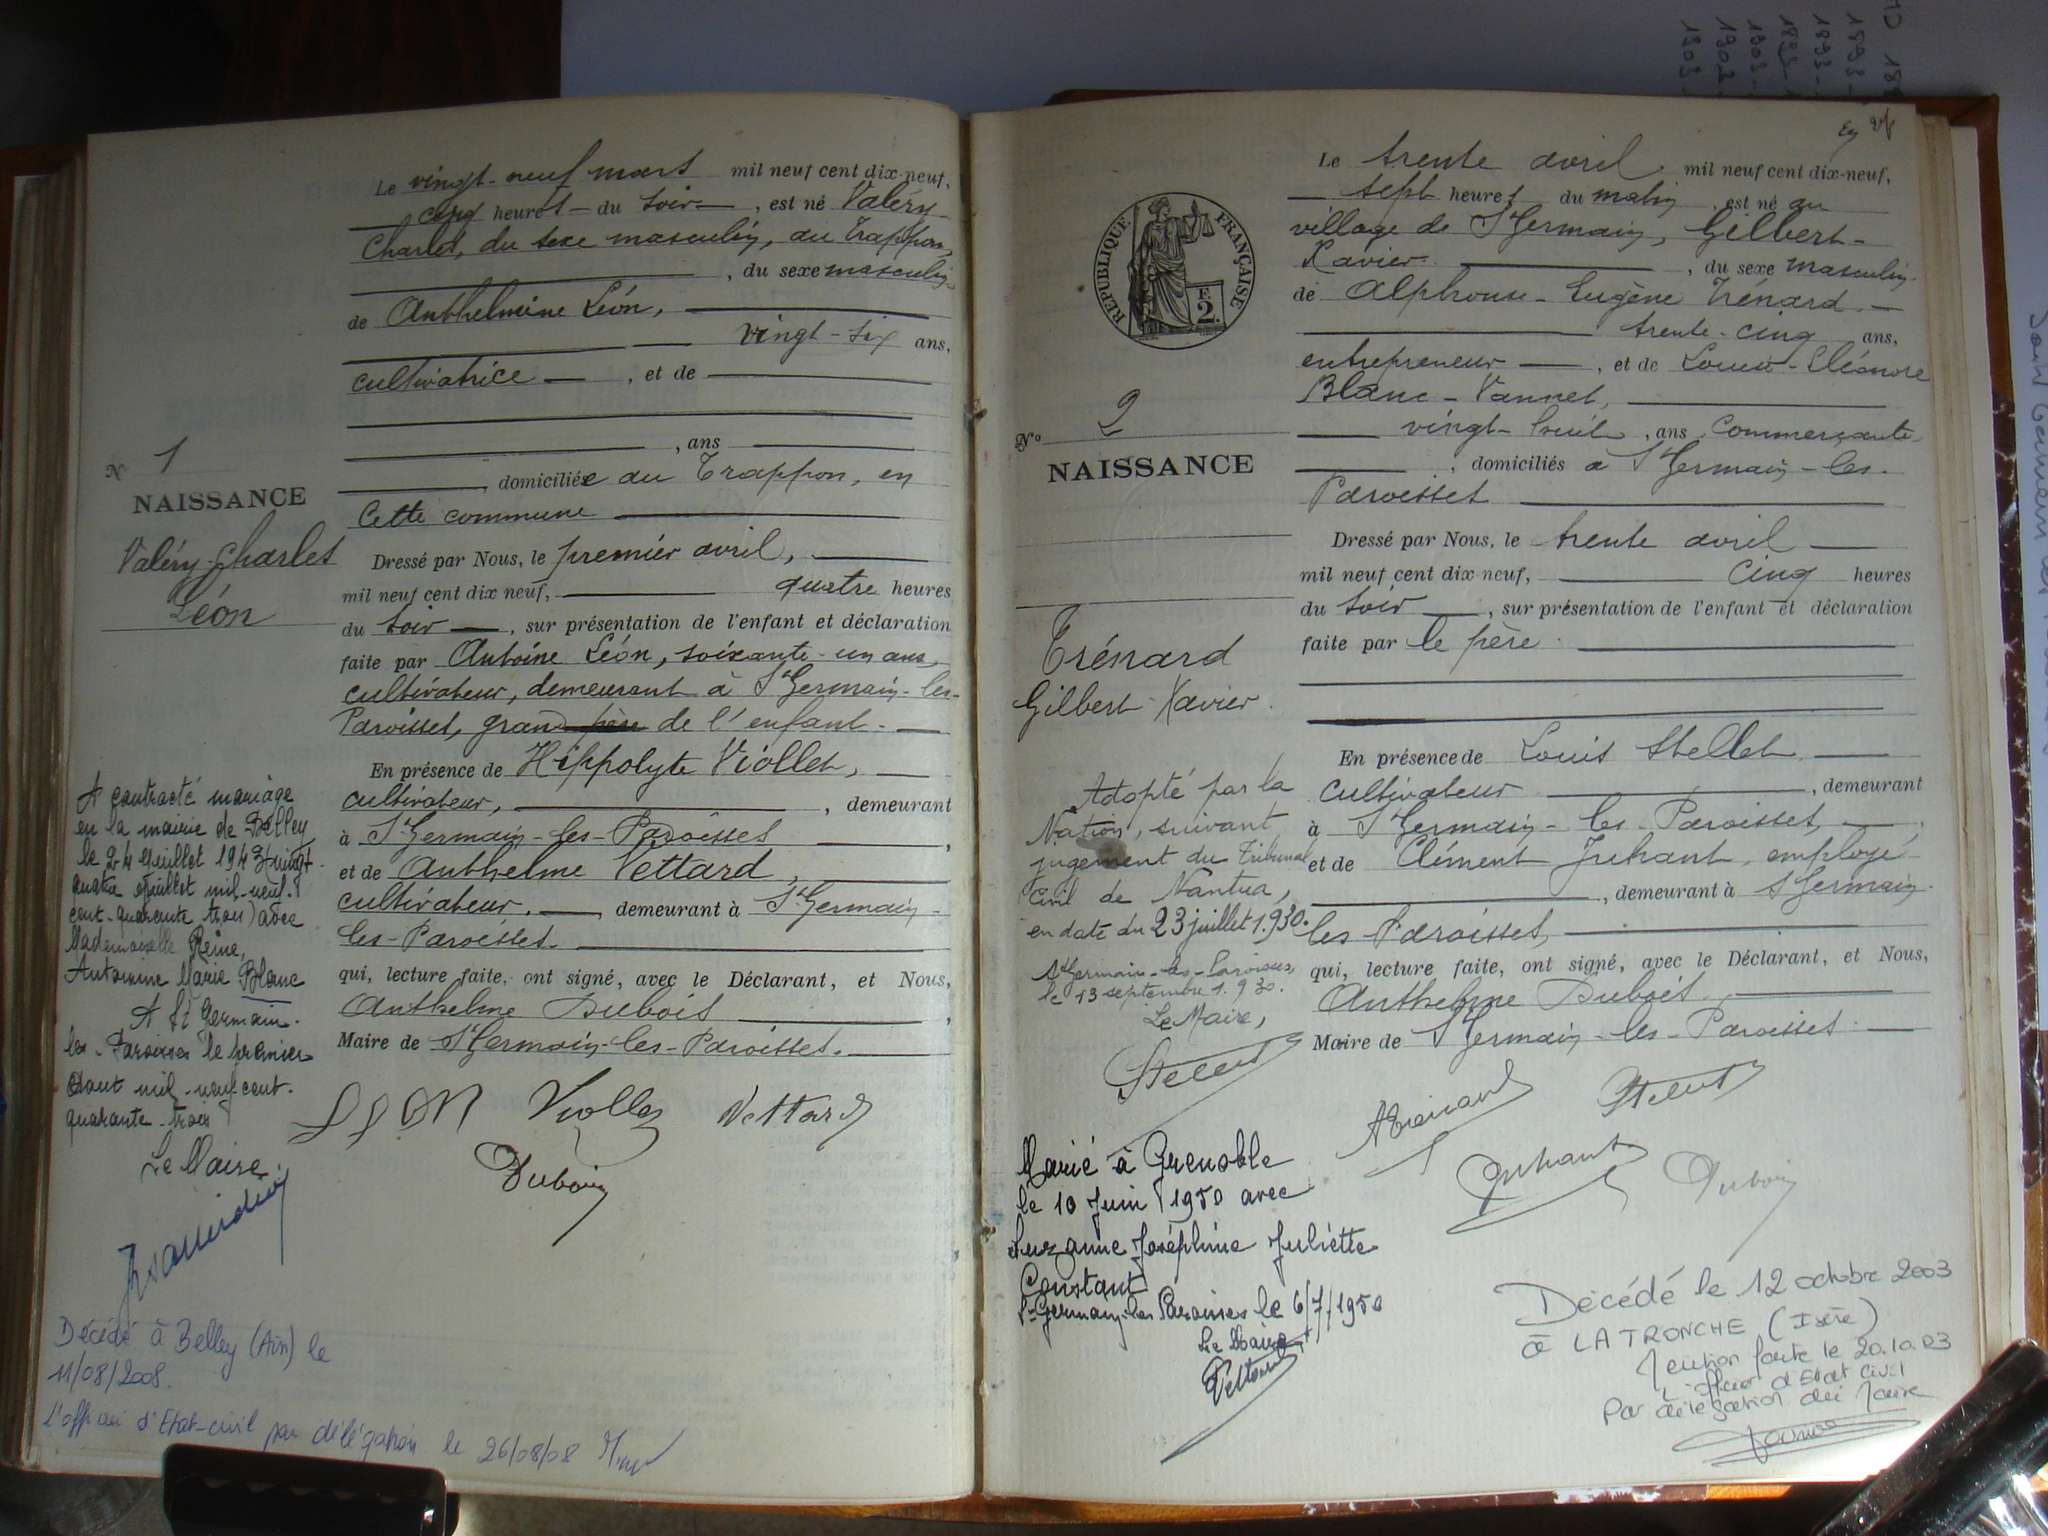 Le vingt-neuf mars mil neuf cent dix-neuf,
cinq heures du soir, est né Valéry
Charles, du sexe masculin, au Trappon,
, du sexe masculin
de Anthelmine Léon,
vingt-six ans,
cultivatrice, et de
, ans
, domiciliée au Trappon, en
cette commune
N 1
NAISSANCE
Valéry-Charles
Léon
Dressé par Nous, le premier avril,
mil neuf cent dix neuf, quatre heures
du soir, sur présentation de l'enfant et déclaration
faite par Antoine Léon, soixante-un ans,
cultivateur, demeurant à St Germain-les-
Paroisses, grand père de l'enfant.
En présence de Hippolyte Viollet,
cultivateur, , demeurant
à St Germain-les-Paroisses,
et de Anthelme Vettard,
cultivateur, demeurant à St Germain-
les-Paroisses.
qui, lecture faite, ont signé, avec le Déclarant, et Nous,
Anthelme Dubois,
Maire de St Germain-les-Paroisses.
LEON Viollet Vettard
Dubois
A contracté mariage
en la mairie de Belley
le 24 Juillet 1943 (vingt
quatre Juillet mil-neuf-
cent-quarante trois) avec
Mademoiselle Reine,
Antoinine Marie Blanc
A St Germain-
les-Paroisses le premier
Août mil-neuf cent-
quarante-trois
Le Maire
Décédé à Belley (Ain) le
11/08/2008.
l'officier d'Etat-civil par délégation le 26/08/08
Le trente avril mil neuf cent dix-neuf,
sept heures du matin, est né au
village de St Germain, Gilbert-
Xavier , du sexe masculin
de Alphonse-Eugène Trénard
trente-cinq ans,
entrepreneur, et de Louise-Eléonore
Blanc-Vannet,
vingt-huit, ans commerçante
, domiciliés à St Germain-les-
Paroisses
RÉPUBLIQUE FRANÇAISE
F.
2.
No 2
NAISSANCE
Trénard
Gilbert-Xavier.
Dressé par Nous, le trente avril
mil neuf cent dix neuf, cinq heures
du soir, sur présentation de l'enfant et déclaration
faite par le père.
En présence de Louis Stellet
cultivateur, demeurant
à St Germain-les-Paroisses,
et de Clément Juhant, employé
, demeurant à St Germain-
les Paroisses,
qui, lecture faite, ont signé, avec le Déclarant, et Nous,
Anthelme Dubois,
Maire de St Germain-les-Paroisses.
Adopté par la
Nation, suivant
jugement du Tribunal
civil de Nantua,
en date du 23 juillet 1.930.
St Germain-les-Paroisses,
le 13 septembre 1.930.
Le Maire,
Stellet
ATrénard Stellet
Juhant Dubois
Marié à Grenoble
le 10 Juin 1950 avec
Suzanne Joséphine Juliette
Constant
St Germain-les Paroisses le 6/7/1950
Le Maire
Décédé le 12 octobre 2003
à LA TRONCHE (Isère)
Mention faite le 20.10.03
L'officier d'Etat civil
Par délégation du Maire
1893
1893
1893
1903
1902
1903